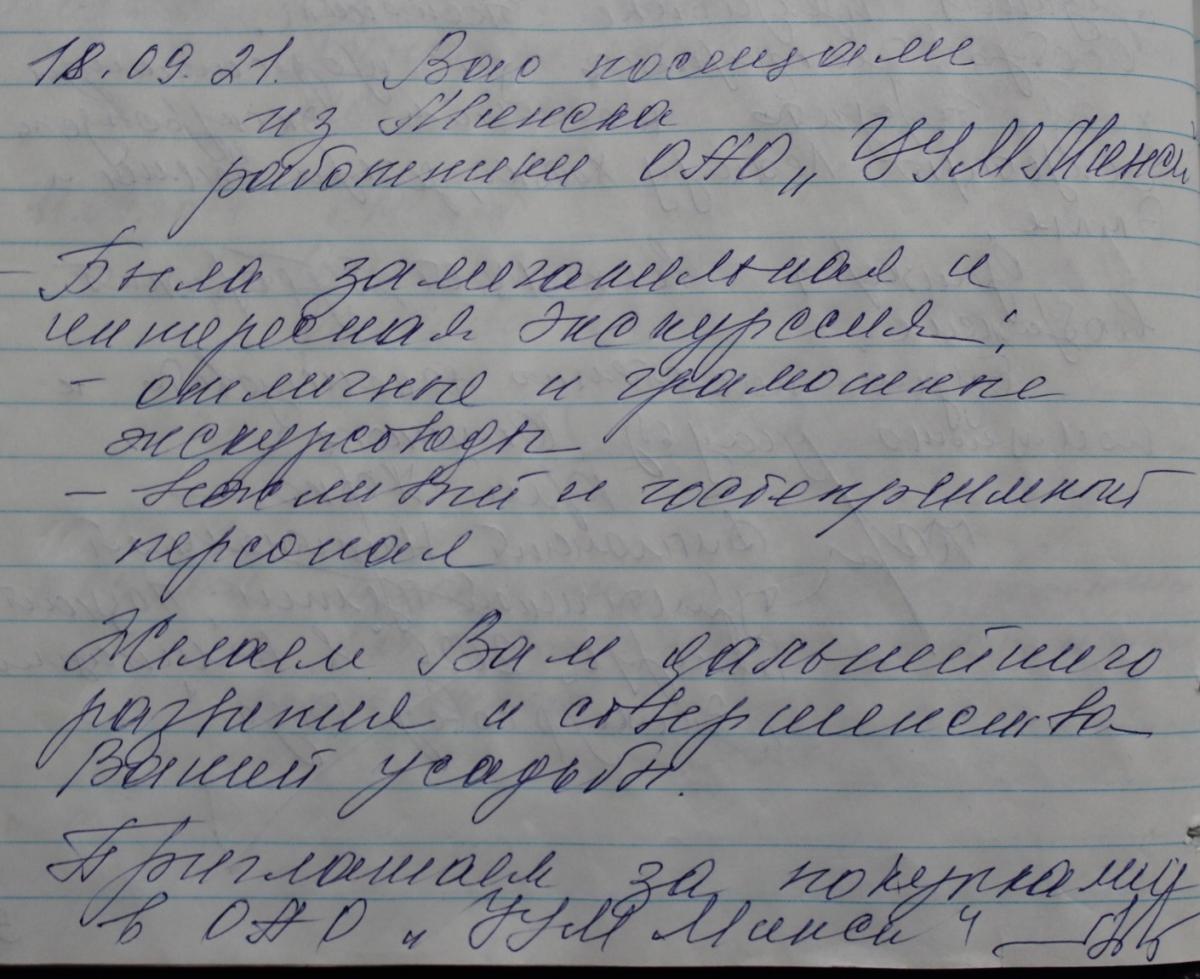 18.09.21. Вас посещали
из Минска
работники ОАО „ЦУМ Минск
– Была замечательная и
интересная экскурссия:
– отличные и грамотные
экскурсоводы
– вежливый и гостеприимный
персонал
Желаем Вам дальнейшего
развития и совершенства
Вашей усадьбы.
Приглашаем за покупками
в ОАО „ЦУМ Минск"